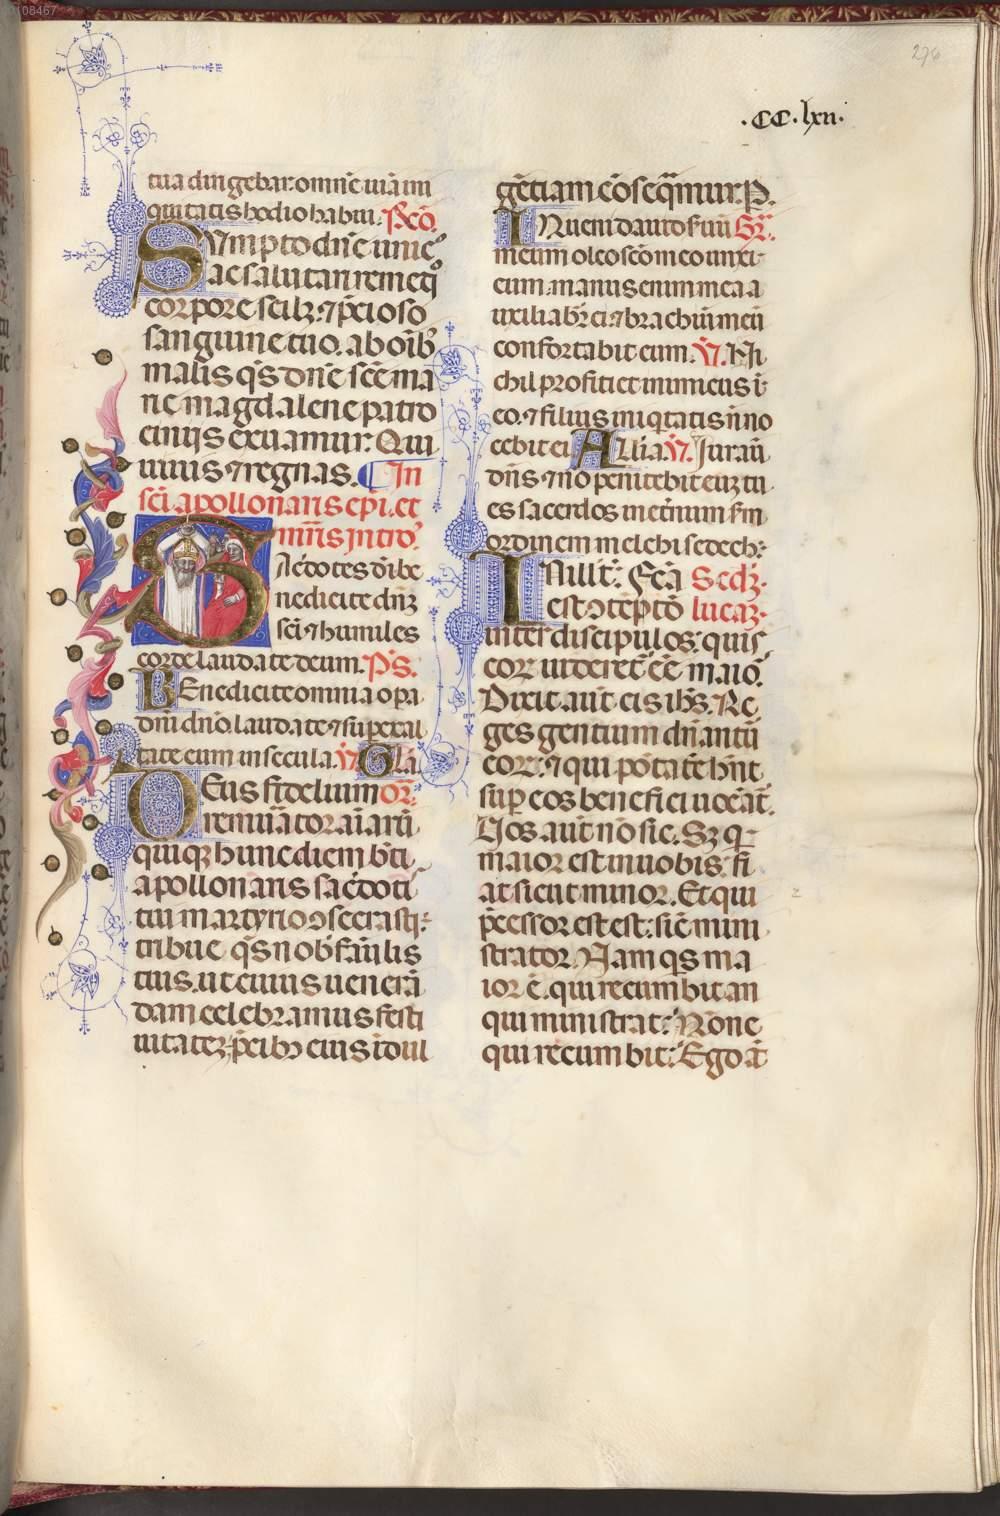 108467
276
.CC.lxii.
tua dirigebar: omnē uiā ini
quitatis hodio habui. P̄cō.
Sumpto dn̄e unic̄
ae salutari remeq̄
corpore scilȝ: ⁊ p̄cioso
sanguine tuo. ab oīb᾽
malis q̄s dn̄e scē ma
rie magdalene patro
cinijs exuamur. Qui
uiuis ⁊ regnas. In
sc̄i apollonaris ep̄i. et
mr̄is intro᾽.
Sac̄dotes dī be
nedicite dn̄ȝ
sc̄i ⁊ humiles
corde laudate deum. P̄s.
Benedicite omnia opa
dn̄i dn̄o. laudate ⁊ supexal
tate eum in secula. V̄. Gl̄a.
Deus fidelium or̄.
remun̄ator aīarū
qui qȝ hunc diem bt̄i
apollonaris sac̄doti
tui martyrio ɔsecrasti:
tribue q̄s nob᾽ fām̄lis
tuis. ut cuius uenerā
dam celebramus festi
uitateȝ. p̄cibȝ eius īdul
gētiam cōseq̄mur. P.
Inueni dauid ẜuū Gr̄.
meum oleo scō meo unxi
eum: manus enim mea a
uxiliab̄r ei ⁊ brachiū meū
confortabit eum. V̄. Ni
chil proficiet inimicus ī
eo. ⁊ filius iniq̄tatis n̄ no
cebit ei. All̄ia. V̄. Iurauī
dn̄s ⁊ nō penitebit euȝ tu
es sacerdos inet̄num ẜm
ordinem melchisedech:
In ill̄ t̄. Fc̄ā Secdȝ.
est ɔtēptō lucaȝ.
inter discipulos. quis
eoꝝ uideret̄ ēē maio᾽.
Dixit aūt eis ih̄s. Re
ges gentium dn̄antū
eoꝝ. ⁊ qui pōtatē hn̄t
sup eos benefici uocāt̄.
Uos aūt nō sic. Sȝ q̄
maior est in uobis. fi
at sicut minor. Et qui
p̄cessor est est: sic̄ mini
strator. Nam q̄s ma
ior ē. qui recumbit an
qui ministrat: Nōne
qui recumbit: Ego āt